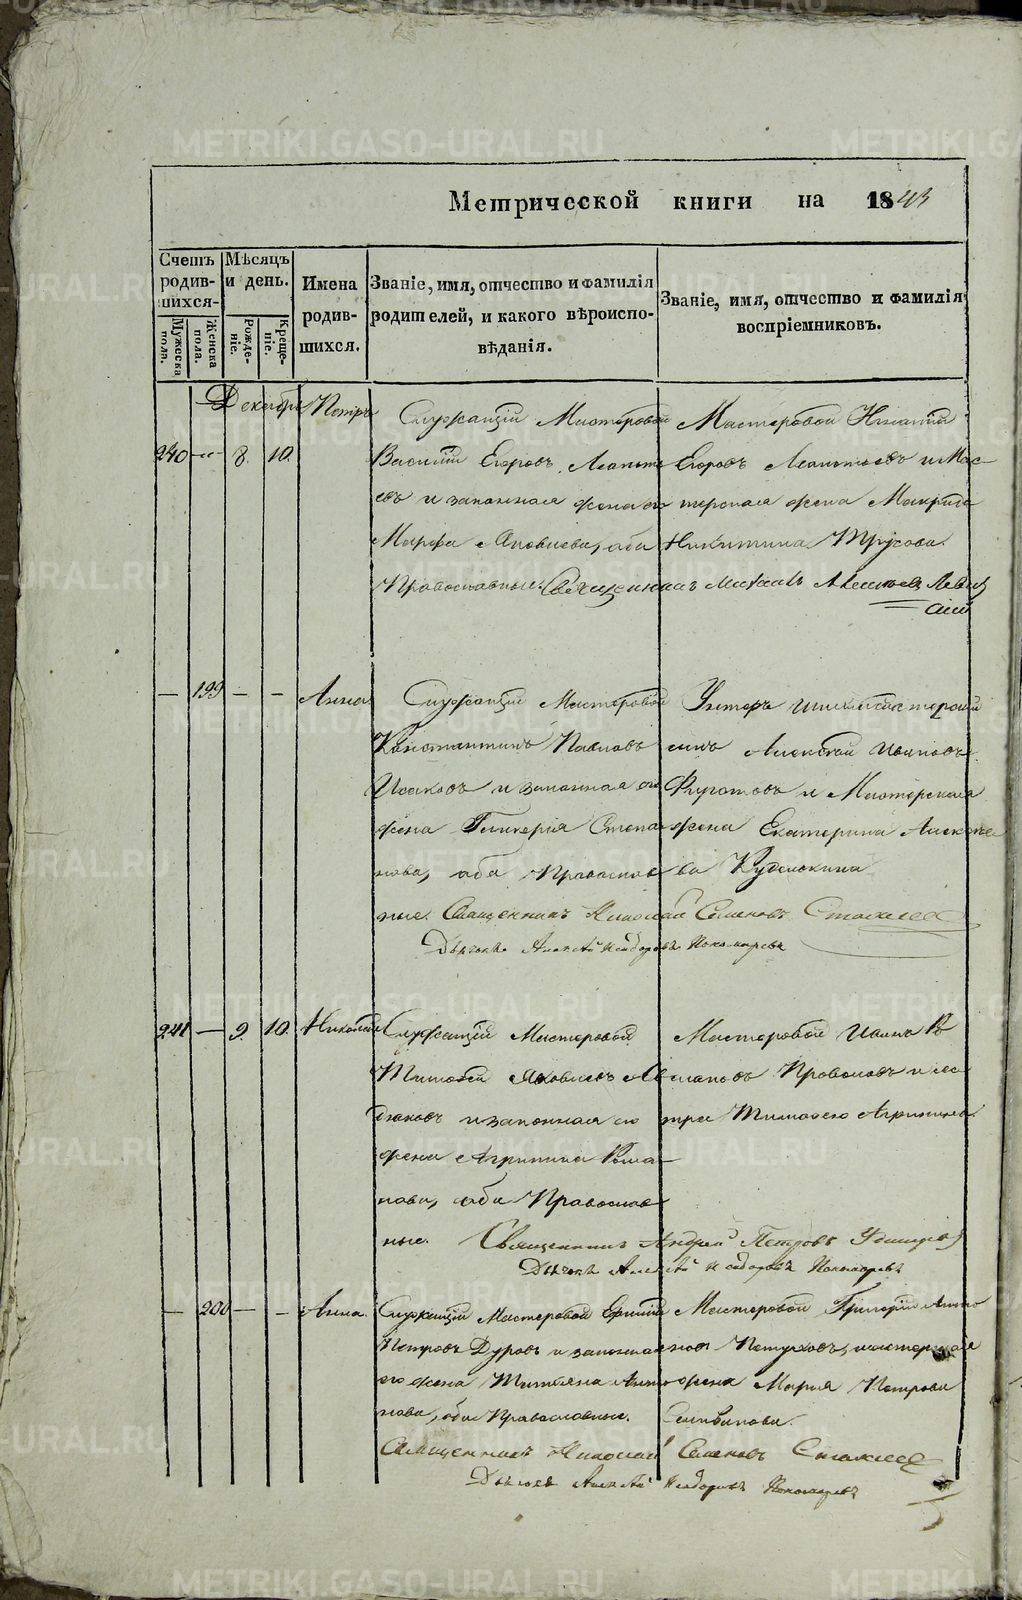 Метрической книги на 1843
Счетъ родив-шихся.
Мужеска пола.
Женска пола.
Мѣсяцъ и день.
Рожде-ніе.
Креще-ніе.
Имена родив-шихся.
Званіе, имя, отчество и фамилія родителей, и какого вѣроиспо-вѣданія.
Званіе, имя, отчество и фамилія воспріемниковъ.
Декабрь
240 — 8. 10.
Петръ
Служащій Мастеровой
Василій Егоровъ Леонть-
евъ и законная жена его
Марфа Яковлева, оба
Православные.
Мастеровой Игнатій
Егоровъ Леонтьевъ и Мас-
терская жена Макрида
Никитина Трусова.
Священникъ Михаилъ
— 199 — —
Анна
Служащій Мастеровой
Константинъ Павловъ
Исаковъ и законная его
жена Гликерія Степа-
нова, оба Православ
ные.
Унтеръ
сынъ Алексѣй Ивановъ
и Мастерская
жена Екатерина Алексѣе
ва
Священникъ Николай Симеоновъ
Дьячекъ Алексѣй Исидоровъ Пономаревъ
241 — 9. 10.
Николай
Служащій Мастеровой
Тимофей Яковлевъ
и законная его
жена Агрипина Рома-
нова, оба Православ
ные.
Мастеровой Иванъ
и сес
тра Тимофею Агрипина.
Священникъ Андрей Петровъ Удинцевъ
Дьячекъ Алексѣй Исидоровъ Пономаревъ
— 200 — —
Анна.
Служащій Мастеровой Ефимій
Петровъ Дуровъ и законная
его жена Татьяна Анто
нова, оба Православные.
Мастеровой Григорій Анто
новъ Петуховъ, мастерская
жена Марія Петрова
Селиванова.
Священникъ Николай Симеоновъ
Дьячекъ Алексѣй Исидоровъ Пономаревъ
METRIKI.GASO-URAL.RU